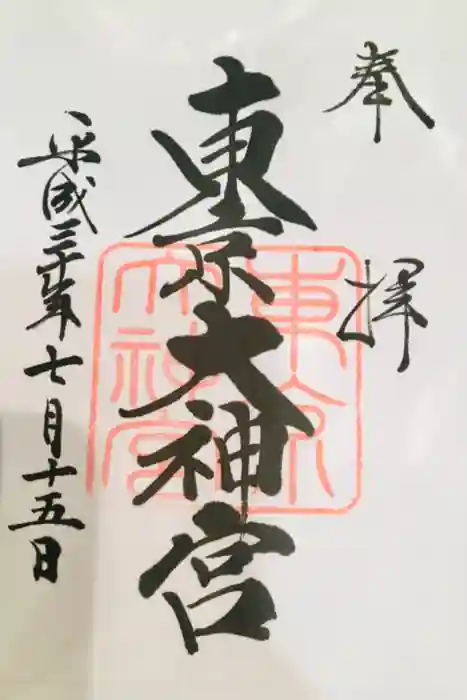 奉拝
東京大神宮
東京大神宮
平成三十年七月十五日